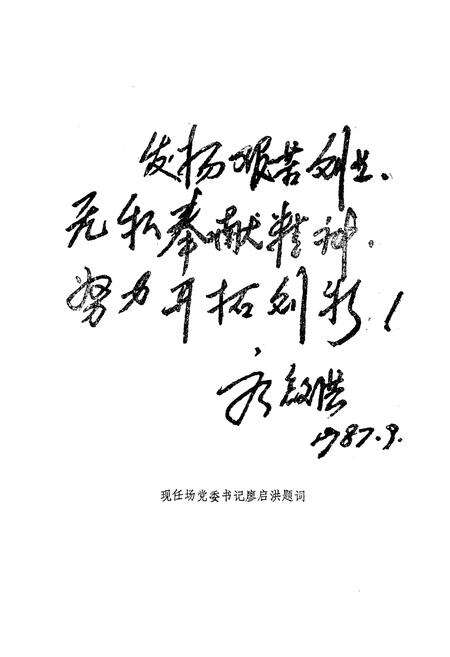 发扬艰苦创业、
无私奉献精神,
努力开拓创新!
廖啟洪
1987.9.
现任场党委书记廖启洪题词